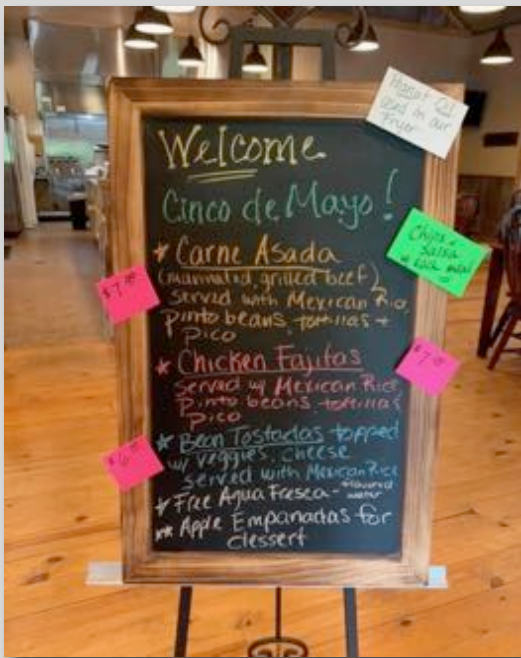 Peanut Oil
used in our
Fryer
Welcome
Cinco de Mayo!
Chips &
Salsa
* Carne Asada
(marinated, grilled beef)
served with Mexican Rice,
pinto beans, tortillas +
pico
$7.00
* Chicken Fajitas
served w/ Mexican Rice
Pinto beans tortillas &
pico
$7.00
* Bean Tostadas topped
w/ veggies, cheese
served with Mexican Rice
$6.00
* Free Agua Fresca - flavored
water
** Apple Empanadas for
dessert